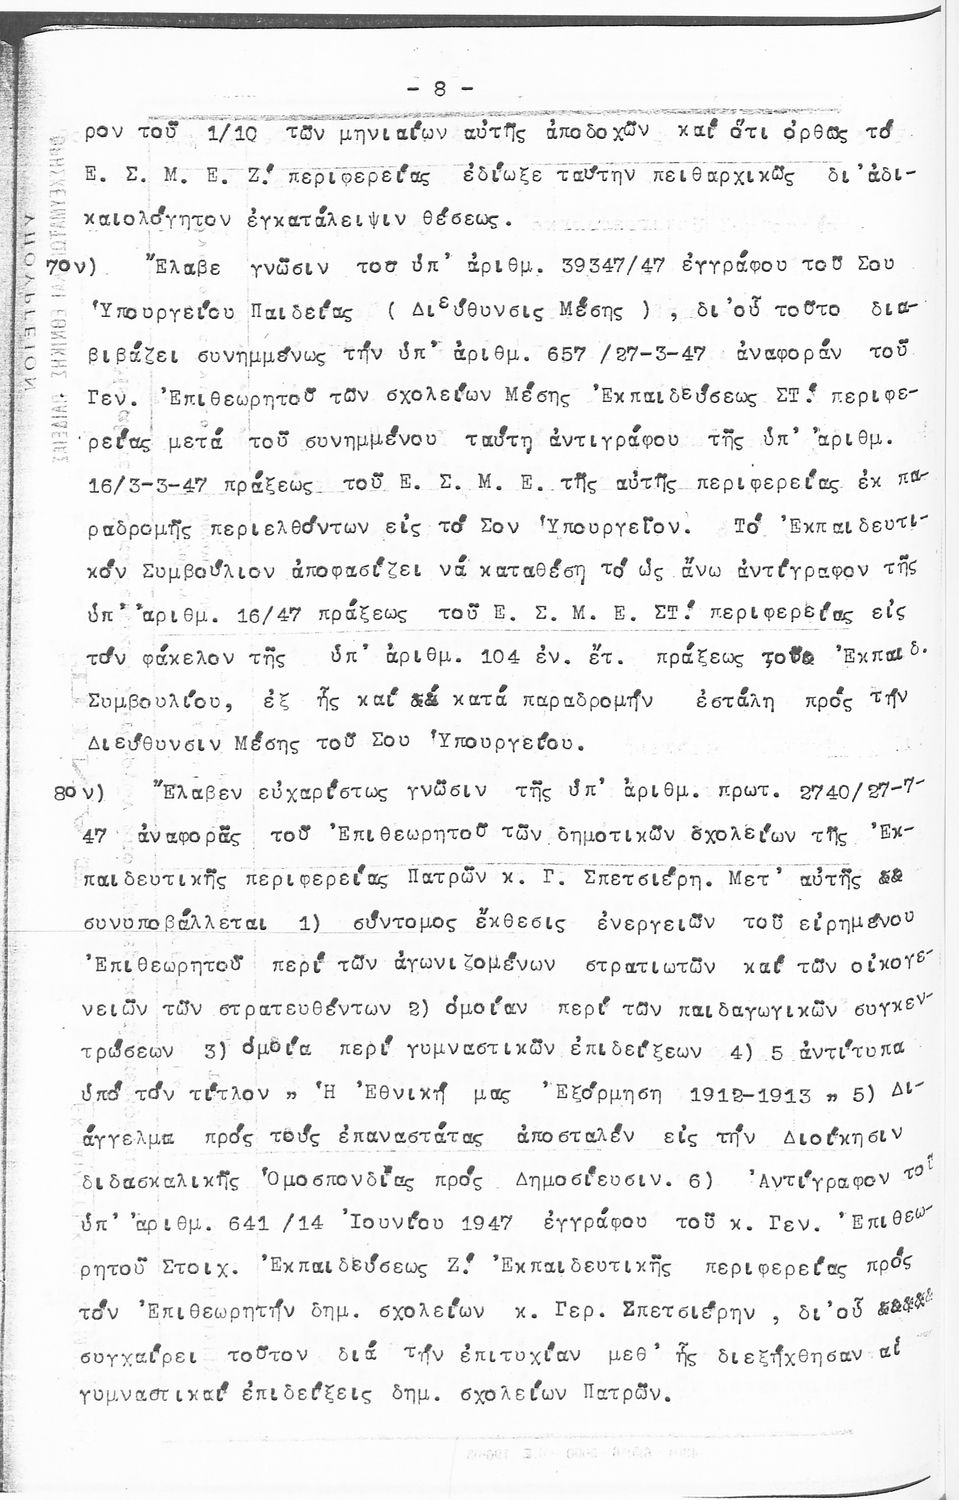 - 8 -
ρον τοῦ 1/10 τῶν μηνιαίων αὐτῆς ἀποδοχῶν καί ὅτι ὀρθῶς τό
Ε. Σ. Μ. Ε. Ζ.' περιφερείας ἐδίωξε ταύτην πειθαρχικῶς δι'ἀδι-
καιολόγητον ἐγκατάλειψιν θέσεως.
7ον) Ἔλαβε γνῶσιν τοῦ ὑπ' ἀριθμ. 39347/47 ἐγγράφου τοῦ Σου
Ὑπουργείου Παιδείας ( Διεύθυνσις Μέσης ) , δι'οὗ τοῦτο δια-
βιβάζει συνημμένως τήν ὑπ' ἀριθμ. 657 /27-3-47 ἀναφοράν τοῦ
Γεν. Ἐπιθεωρητοῦ τῶν σχολείων Μέσης Ἐκπαιδεύσεως ΣΤ.' περιφε-
ρείας μετά τοῦ συνημμένου ταύτῃ ἀντιγράφου τῆς ὑπ' ἀριθμ.
16/3-3-47 πράξεως τοῦ Ε. Σ. Μ. Ε. τῆς αὐτῆς περιφερείας ἐκ πα-
ραδρομῆς περιελθόντων εἰς τό Σον Ὑπουργεῖον. Τό Ἐκπαιδευτι-
κόν Συμβούλιον ἀποφασίζει νά καταθέσῃ τό ὡς ἄνω ἀντίγραφον τῆς
ὑπ' ἀριθμ. 16/47 πράξεως τοῦ Ε. Σ. Μ. Ε. ΣΤ.' περιφερείας εἰς
τόν φάκελον τῆς ὑπ' ἀριθμ. 104 ἐν. ἔτ. πράξεως τοῦ Ἐκπαιδ.
Συμβουλίου, ἐξ ἧς καί κατά παραδρομήν ἐστάλη πρός τήν
Διεύθυνσιν Μέσης τοῦ Σου Ὑπουργείου.
8ον) Ἔλαβεν εὐχαρίστως γνῶσιν τῆς ὑπ' ἀριθμ. πρωτ. 2740/27-7-
47 ἀναφορᾶς τοῦ Ἐπιθεωρητοῦ τῶν δημοτικῶν σχολείων τῆς Ἐκ-
παιδευτικῆς περιφερείας Πατρῶν κ. Γ. Σπετσιέρη. Μετ' αὐτῆς
συνυποβάλλεται 1) σύντομος ἔκθεσις ἐνεργειῶν τοῦ εἰρημένου
Ἐπιθεωρητοῦ περί τῶν ἀγωνιζομένων στρατιωτῶν καί τῶν οἰκογε-
νειῶν τῶν στρατευθέντων 2) ὁμοίαν περί τῶν παιδαγωγικῶν συγκεν-
τρώσεων 3) ὁμοία περί γυμναστικῶν ἐπιδείξεων 4) 5 ἀντίτυπα
ὑπό τόν τίτλον " Ἡ Ἐθνική μας Ἐξόρμηση 1912-1913 " 5) Δι-
άγγελμα πρός τούς ἐπαναστάτας ἀποσταλέν εἰς τήν Διοίκησιν
διδασκαλικῆς Ὁμοσπονδίας πρός Δημοσίευσιν. 6) Ἀντίγραφον τοῦ
ὑπ' ἀριθμ. 641 /14 Ἰουνίου 1947 ἐγγράφου τοῦ κ. Γεν. Ἐπιθεω-
ρητοῦ Στοιχ. Ἐκπαιδεύσεως Ζ.' Ἐκπαιδευτικῆς περιφερείας πρός
τόν Ἐπιθεωρητήν δημ. σχολείων κ. Γερ. Σπετσιέρην , δι'οὗ
συγχαίρει τοῦτον διά τήν ἐπιτυχίαν μεθ' ἧς διεξήχθησαν αἱ
γυμναστικαί ἐπιδείξεις δημ. σχολείων Πατρῶν.